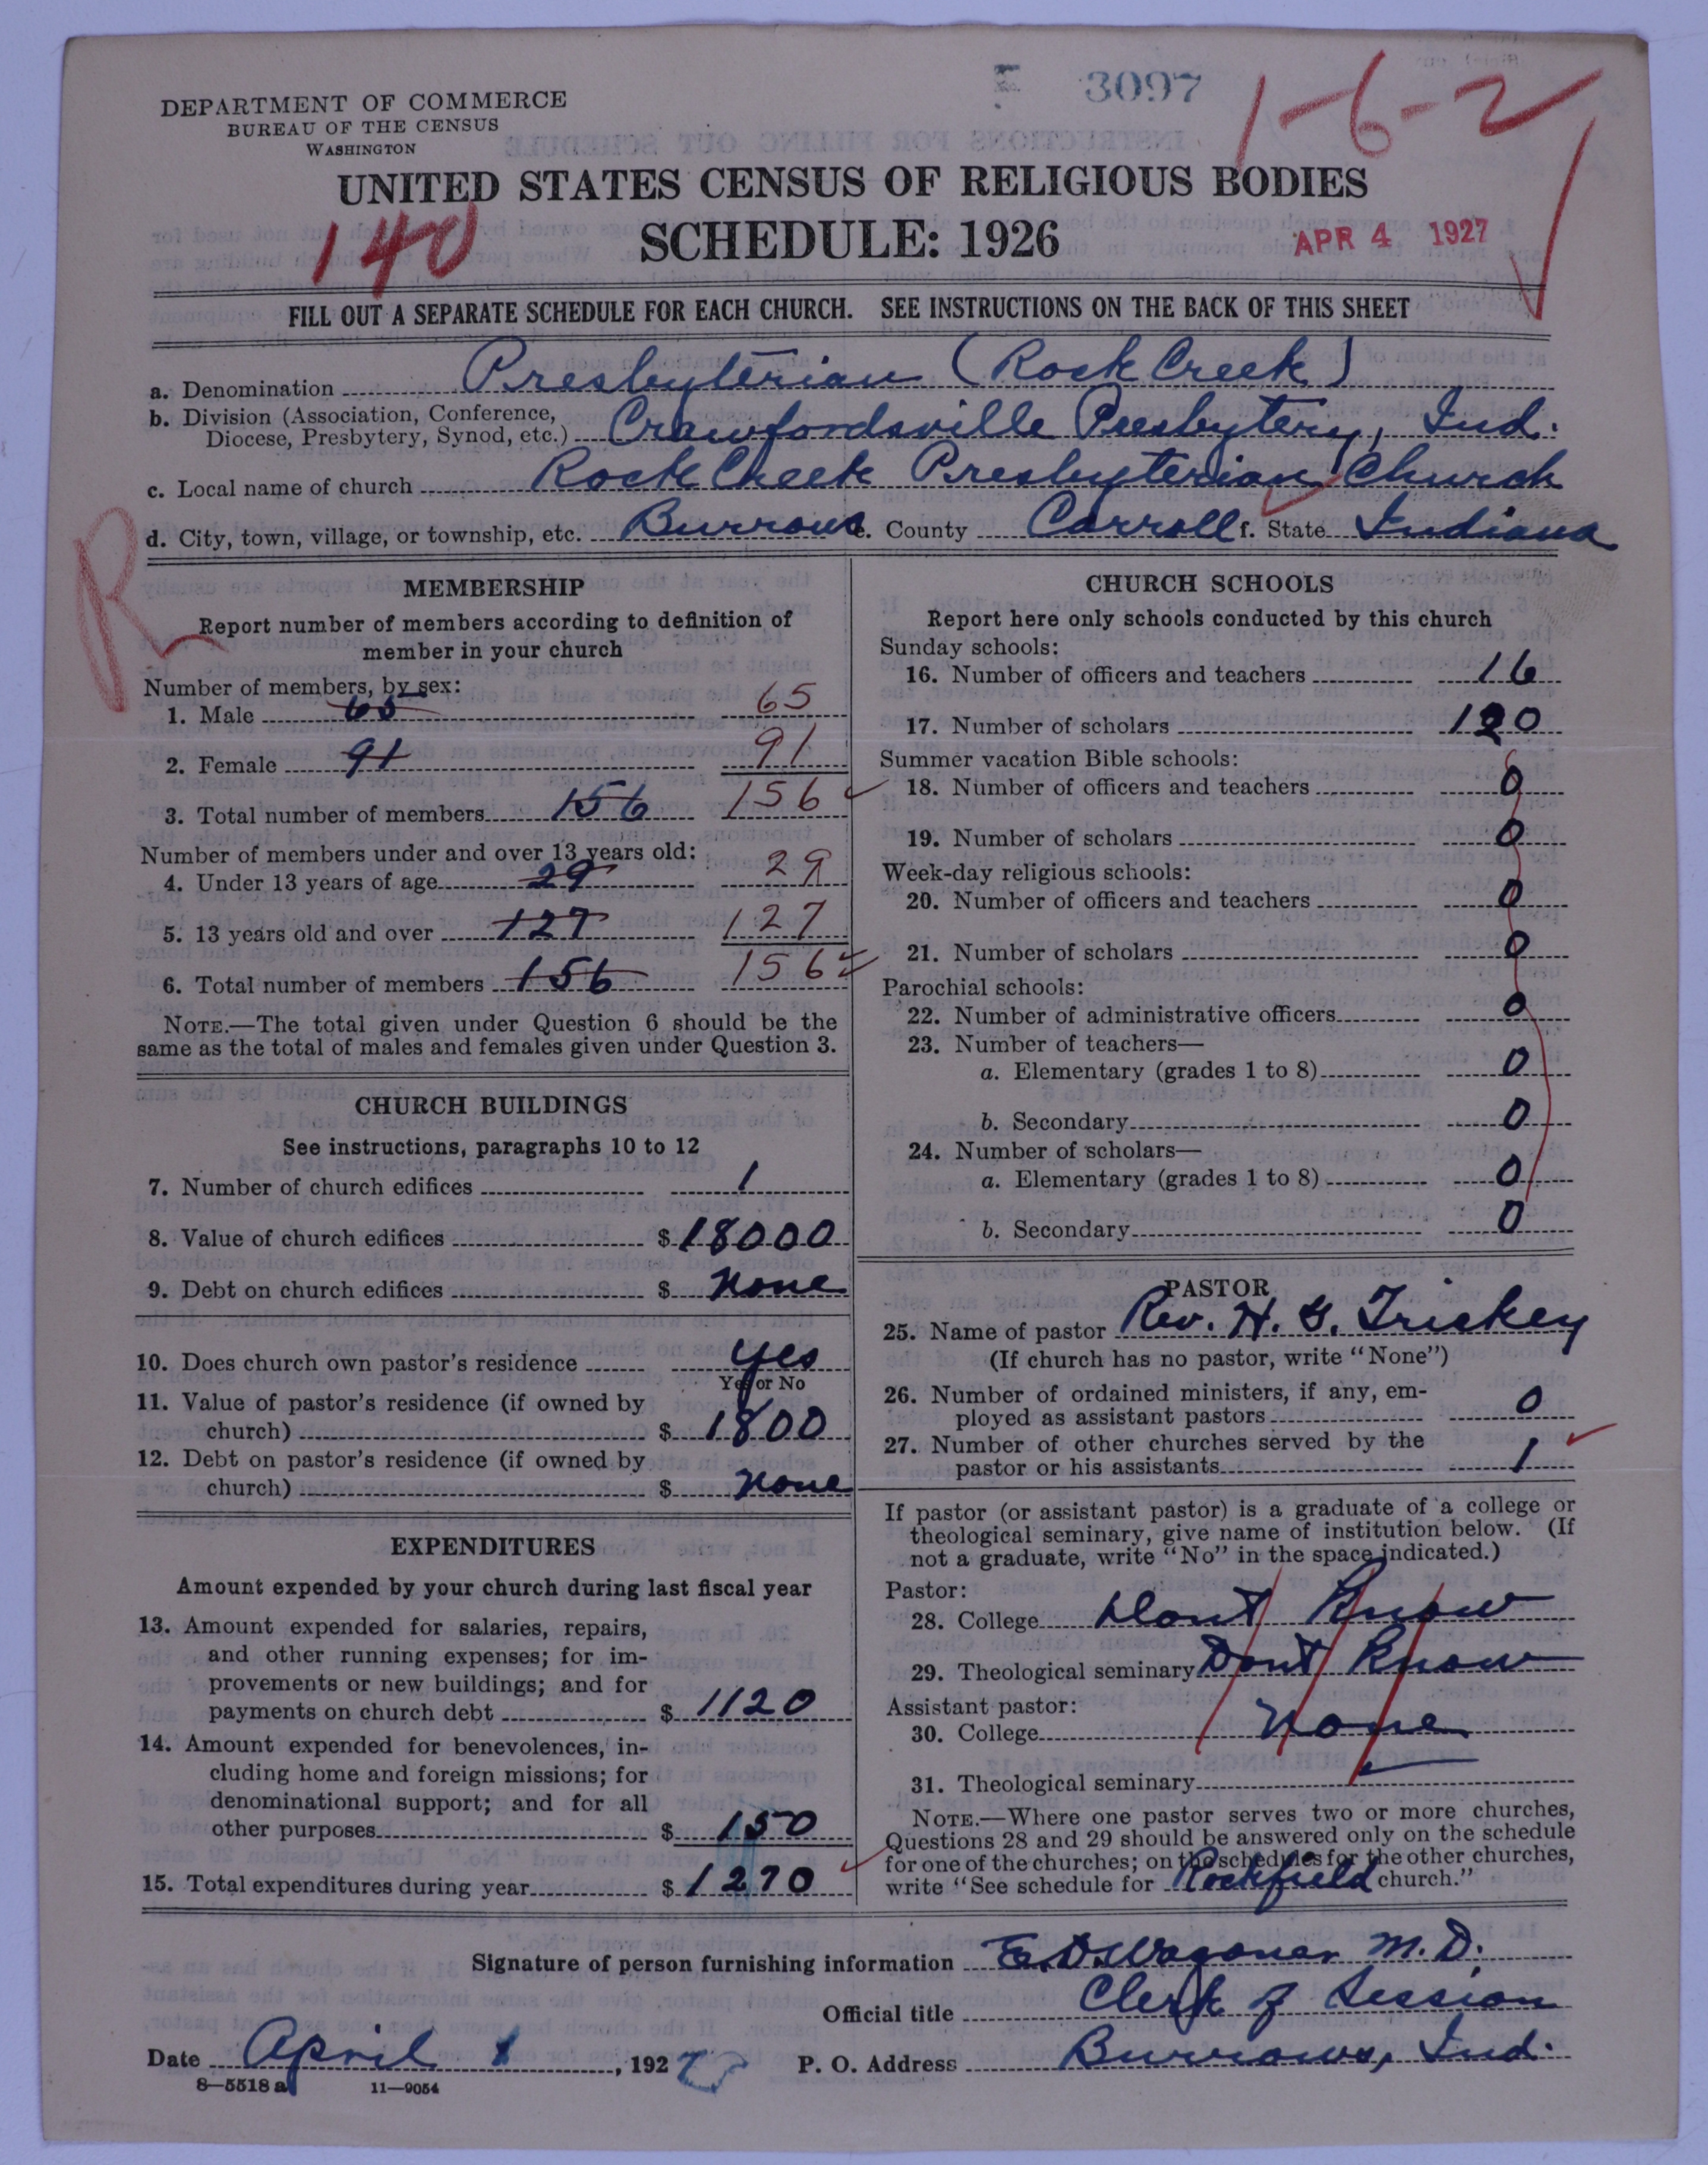 3097
1-6-2
DEPARTMENT OF COMMERCE
BUREAU OF THE CENSUS
WASHINGTON
UNITED STATES CENSUS OF RELIGIOUS BODIES
140
SCHEDULE: 1926
APR 4 1927
FILL OUT A SEPARATE SCHEDULE FOR EACH CHURCH. SEE INSTRUCTIONS ON THE BACK OF THIS SHEET
a. Denomination Presbyterian (Rock Creek)
b. Division (Association, Conference,
Diocese, Presbytery, Synod, etc.) Crawfordsville Presbytery, Ind.
c. Local name of church Rock Creek Presbyterian Church
d. City, town, village, or township, etc. Burrows e. County Carroll f. State Indiana
R
MEMBERSHIP
Report number of members according to definition of
member in your church
Number of members, by sex:
1. Male 65 65
2. Female 91 91
3. Total number of members 156 156
Number of members under and over 13 years old:
4. Under 13 years of age 29 29
5. 13 years old and over 127 127
6. Total number of members 156 156
NOTE.—The total given under Question 6 should be the
same as the total of males and females given under Question 3.
CHURCH BUILDINGS
See instructions, paragraphs 10 to 12
7. Number of church edifices 1
8. Value of church edifices $ 18000
9. Debt on church edifices $ None
10. Does church own pastor's residence Yes
Yes or No
11. Value of pastor's residence (if owned by
church) $ 1800
12. Debt on pastor's residence (if owned by
church) $ None
EXPENDITURES
Amount expended by your church during last fiscal year
13. Amount expended for salaries, repairs,
and other running expenses; for im-
provements or new buildings; and for
payments on church debt $ 1120
14. Amount expended for benevolences, in-
cluding home and foreign missions; for
denominational support; and for all
other purposes $ 150
15. Total expenditures during year $ 1270
CHURCH SCHOOLS
Report here only schools conducted by this church
Sunday schools:
16. Number of officers and teachers 16
17. Number of scholars 120
Summer vacation Bible schools:
18. Number of officers and teachers 0
19. Number of scholars 0
Week-day religious schools:
20. Number of officers and teachers 0
21. Number of scholars 0
Parochial schools:
22. Number of administrative officers 0
23. Number of teachers—
a. Elementary (grades 1 to 8) 0
b. Secondary 0
24. Number of scholars—
a. Elementary (grades 1 to 8) 0
b. Secondary 0
PASTOR
25. Name of pastor Rev. H. G. Trickey
(If church has no pastor, write "None")
26. Number of ordained ministers, if any, em-
ployed as assistant pastors 0
27. Number of other churches served by the
pastor or his assistants 1
If pastor (or assistant pastor) is a graduate of a college or
theological seminary, give name of institution below. (If
not a graduate, write "No" in the space indicated.)
Pastor:
28. College Dont Know
29. Theological seminary Dont Know
Assistant pastor:
30. College None
31. Theological seminary
NOTE.—Where one pastor serves two or more churches,
Questions 28 and 29 should be answered only on the schedule
for one of the churches; on the schedules for the other churches,
write "See schedule for Rockfield church."
Signature of person furnishing information E. D. Wagoner M.D.
Official title Clerk of Session
Date April 1, 1927 P. O. Address Burrows, Ind.
8—5518 a 11—9054